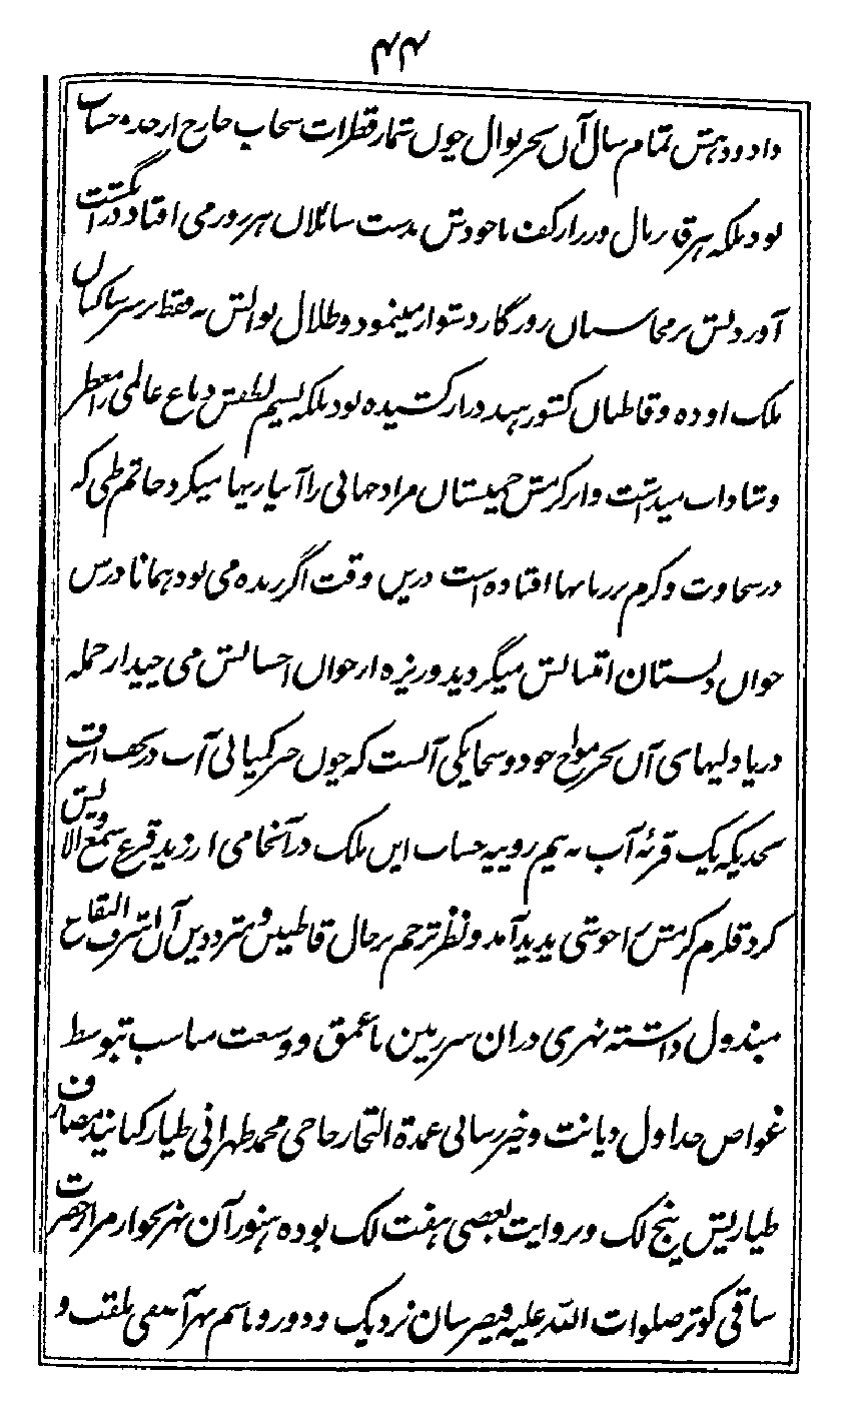 ۴۴
داد و دہش تمام سال آں بحر نوال چوں شمار قطرات سحاب خارج از حد حساب
بود بلکہ ہر قدر مال و زر از کف با جودش بدست سائلاں ہر روز می افتاد در انگشت
آوردنش بر محاسباں روزگار دشوار مینمود و ظلال نوالش نہ فقط بر سر ساکناں
ملک اودہ و قاطنان کشور ہند دراز کشیدہ بود بلکہ نسیم لطفش دماغ عالمی را معطر
و شاداب میداشت و ابر کرمش چمنستان مراد جہانی را آبیاریہا میکرد حاتم طی کہ
در سخاوت و کرم بر زبانہا افتادہ است دریں وقت اگر زندہ می بود ہمانا درس
خوان دبستان افضالش میگردید و ریزہ از خوان احسانش می چید از جملہ
دریا دلیہای آں بحر مواج جود و سخا یکی آنست کہ چوں خبر کمیابی آب در نجف اشرف
بحدیکہ یک قربۂ آب بہ نیم روپیہ حساب ایں ملک در آنجا می ارزید قرع سمع والایش
کرد قلزم کرمش را جوشی پدید آمد و نظر ترحم بر حال قاطنین و مترددین آں اشرف البقاع
مبذول داشتہ نہری دران سرزمین با عمق و وسعت مناسب بتوسط
غواص جداول دیانت و خیر رسانی عمدۃ التجار حاجی محمد طہرانی طیار کنانید مصارف
طیاریش پنج لک و بروایت بعضی ہفت لک بودہ ہنوز آن نہر بجوار مزار حضرت
ساقی کوثر صلوات اللہ علیہ فیض رسان نزدیک و دور و باسم نہر آصفی ملقب و